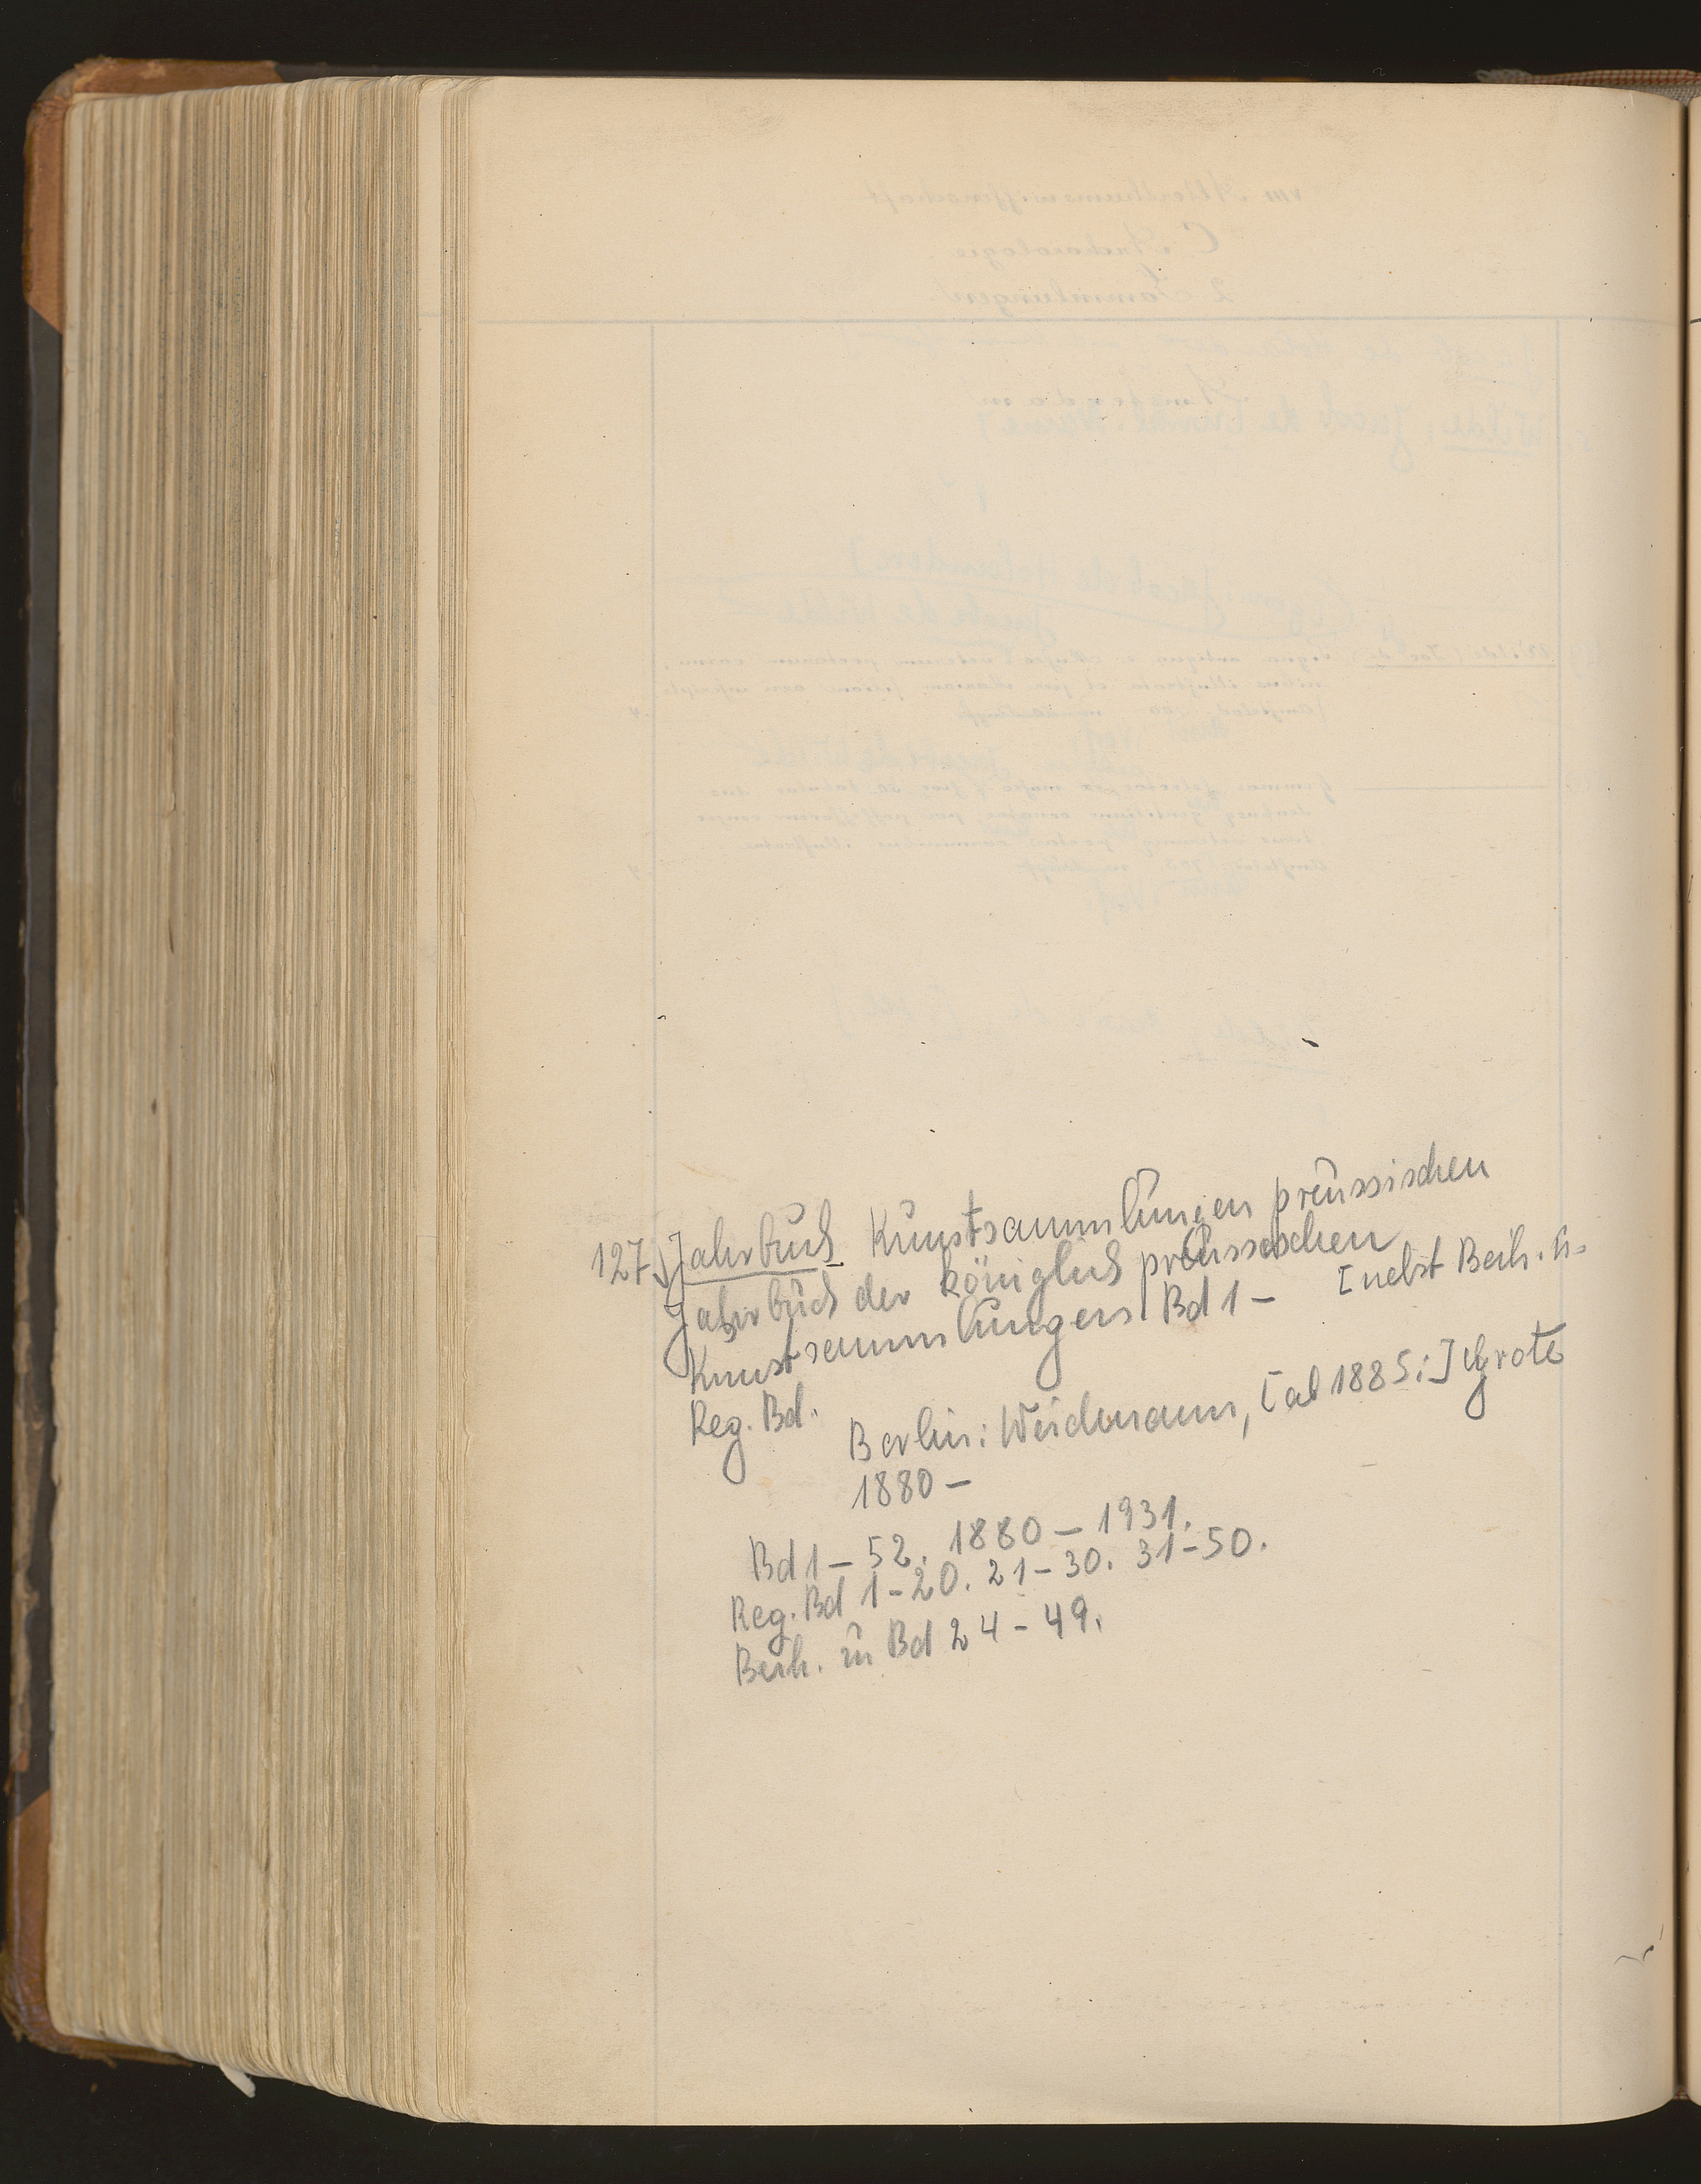 127) Jahrbuch Kunstsammlungen preussischen
Jahrbuch der königlich preussischen
Kunstsammlungen Bd 1 – [nebst Beih. u.
Reg. Bd.
Berlin: Weidmann, [ab 1885:] Grote
1880 –
Bd 1 – 52. 1880 – 1931.
Reg. Bd 1 – 20. 21 – 30. 31 – 50.
Beih. zu Bd 24 – 49.